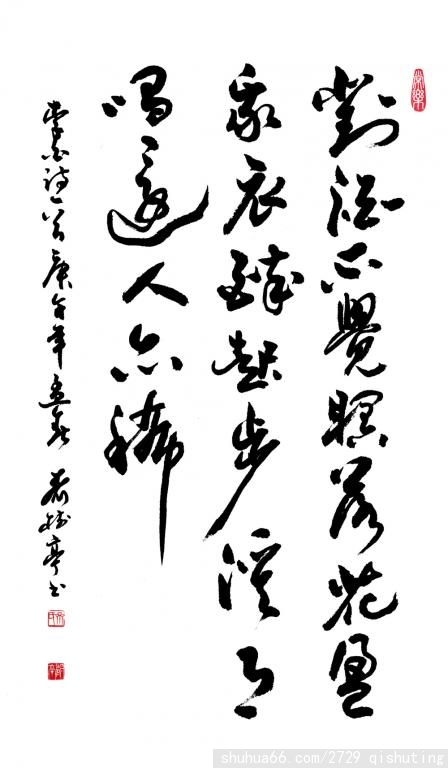 對酒不覺暝落花盈
我衣醉起步溪月
鳥還人亦稀
李白詩一首庚午年 齊樹亭書
shuhua66.com/2729 qishuting